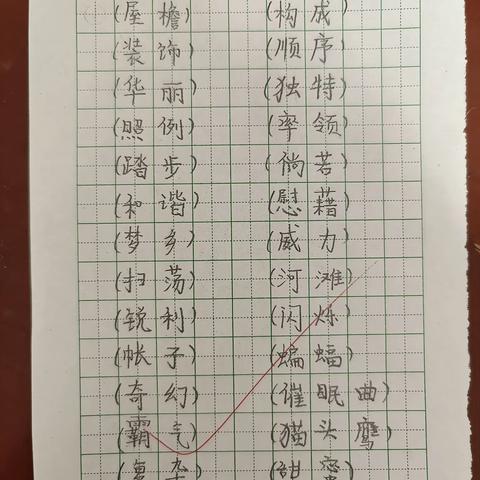 (屋檐) (构成)
(装饰) (顺序)
(华丽) (独特)
(照例) (率领)
(踏步) (倘若)
(和谐) (慰藉)
(梦乡) (威力)
(扫荡) (河滩)
(锐利) (闪烁)
(帐子) (蝙蝠)
(奇幻) (催眠曲)
(霸气) (猫头鹰)
(复杂) (甜蜜)